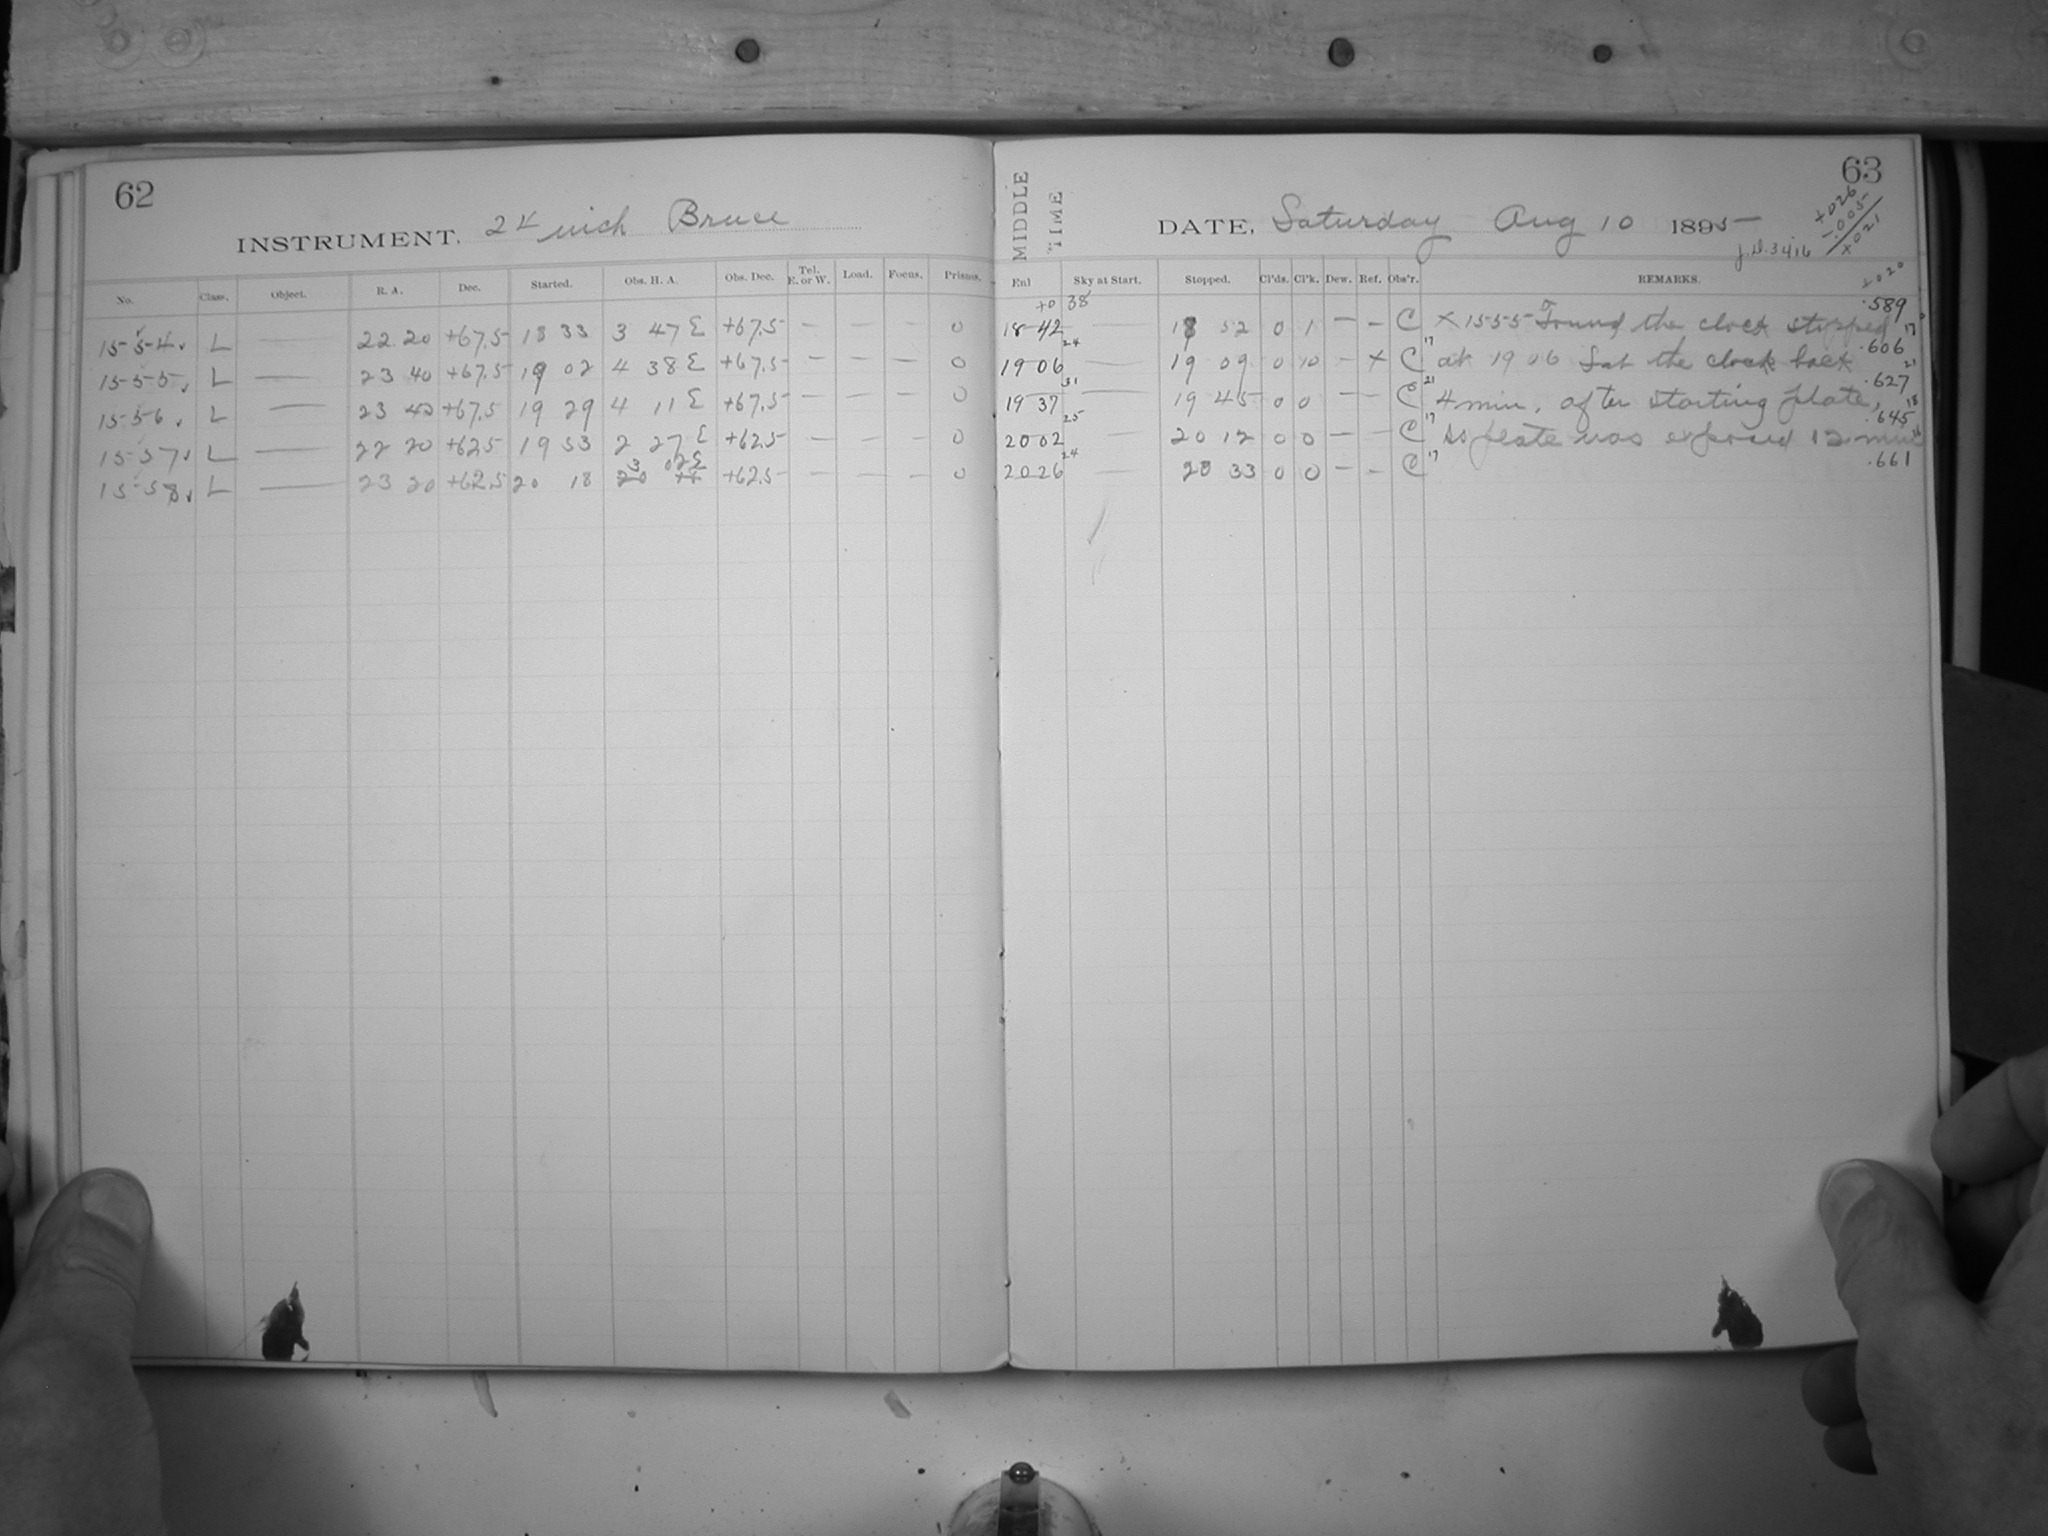 62
INSTRUMENT, 24 inch Bruce
No. Class. Object. R. A. Dec. Started. Obs. H. A. Obs. Dec. Tel. E. or W. Load. Focus. Prisms.
1554 L — 22 20 +67.5 18 33 3 47 E +67.5 — — — 0
1555 L — 23 40 +67.5 19 02 4 38 E +67.5 — — — 0
1556 L — 23 40 +67.5 19 29 4 11 E +67.5 — — — 0
1557 L — 22 20 +62.5 19 53 2 27 E +62.5 — — — 0
1558 L — 23 20 +62.5 20 18 3 02 E +62.5 — — — 0
63
MIDDLE TIME
DATE, Saturday Aug 10 1895
J.D. 3416
+026
-.005
+021
+020
Enl Sky at Start. Stopped. Cl'ds. Cl'k. Dew. Ref. Obs'r. REMARKS.
+0 38
18 42 — 18 52 0 1 — — C × 1555 Found the clock stopped .589
24 17
19 06 — 19 09 0 10 — × C at 19 06 Set the clock back .606
31 21
19 37 — 19 45 0 0 — — C 4 min. after starting plate, .627
25 18
20 02 — 20 12 0 0 — — C So plate was exposed 12 min .645
24 17
20 26 — 20 33 0 0 — — C .661